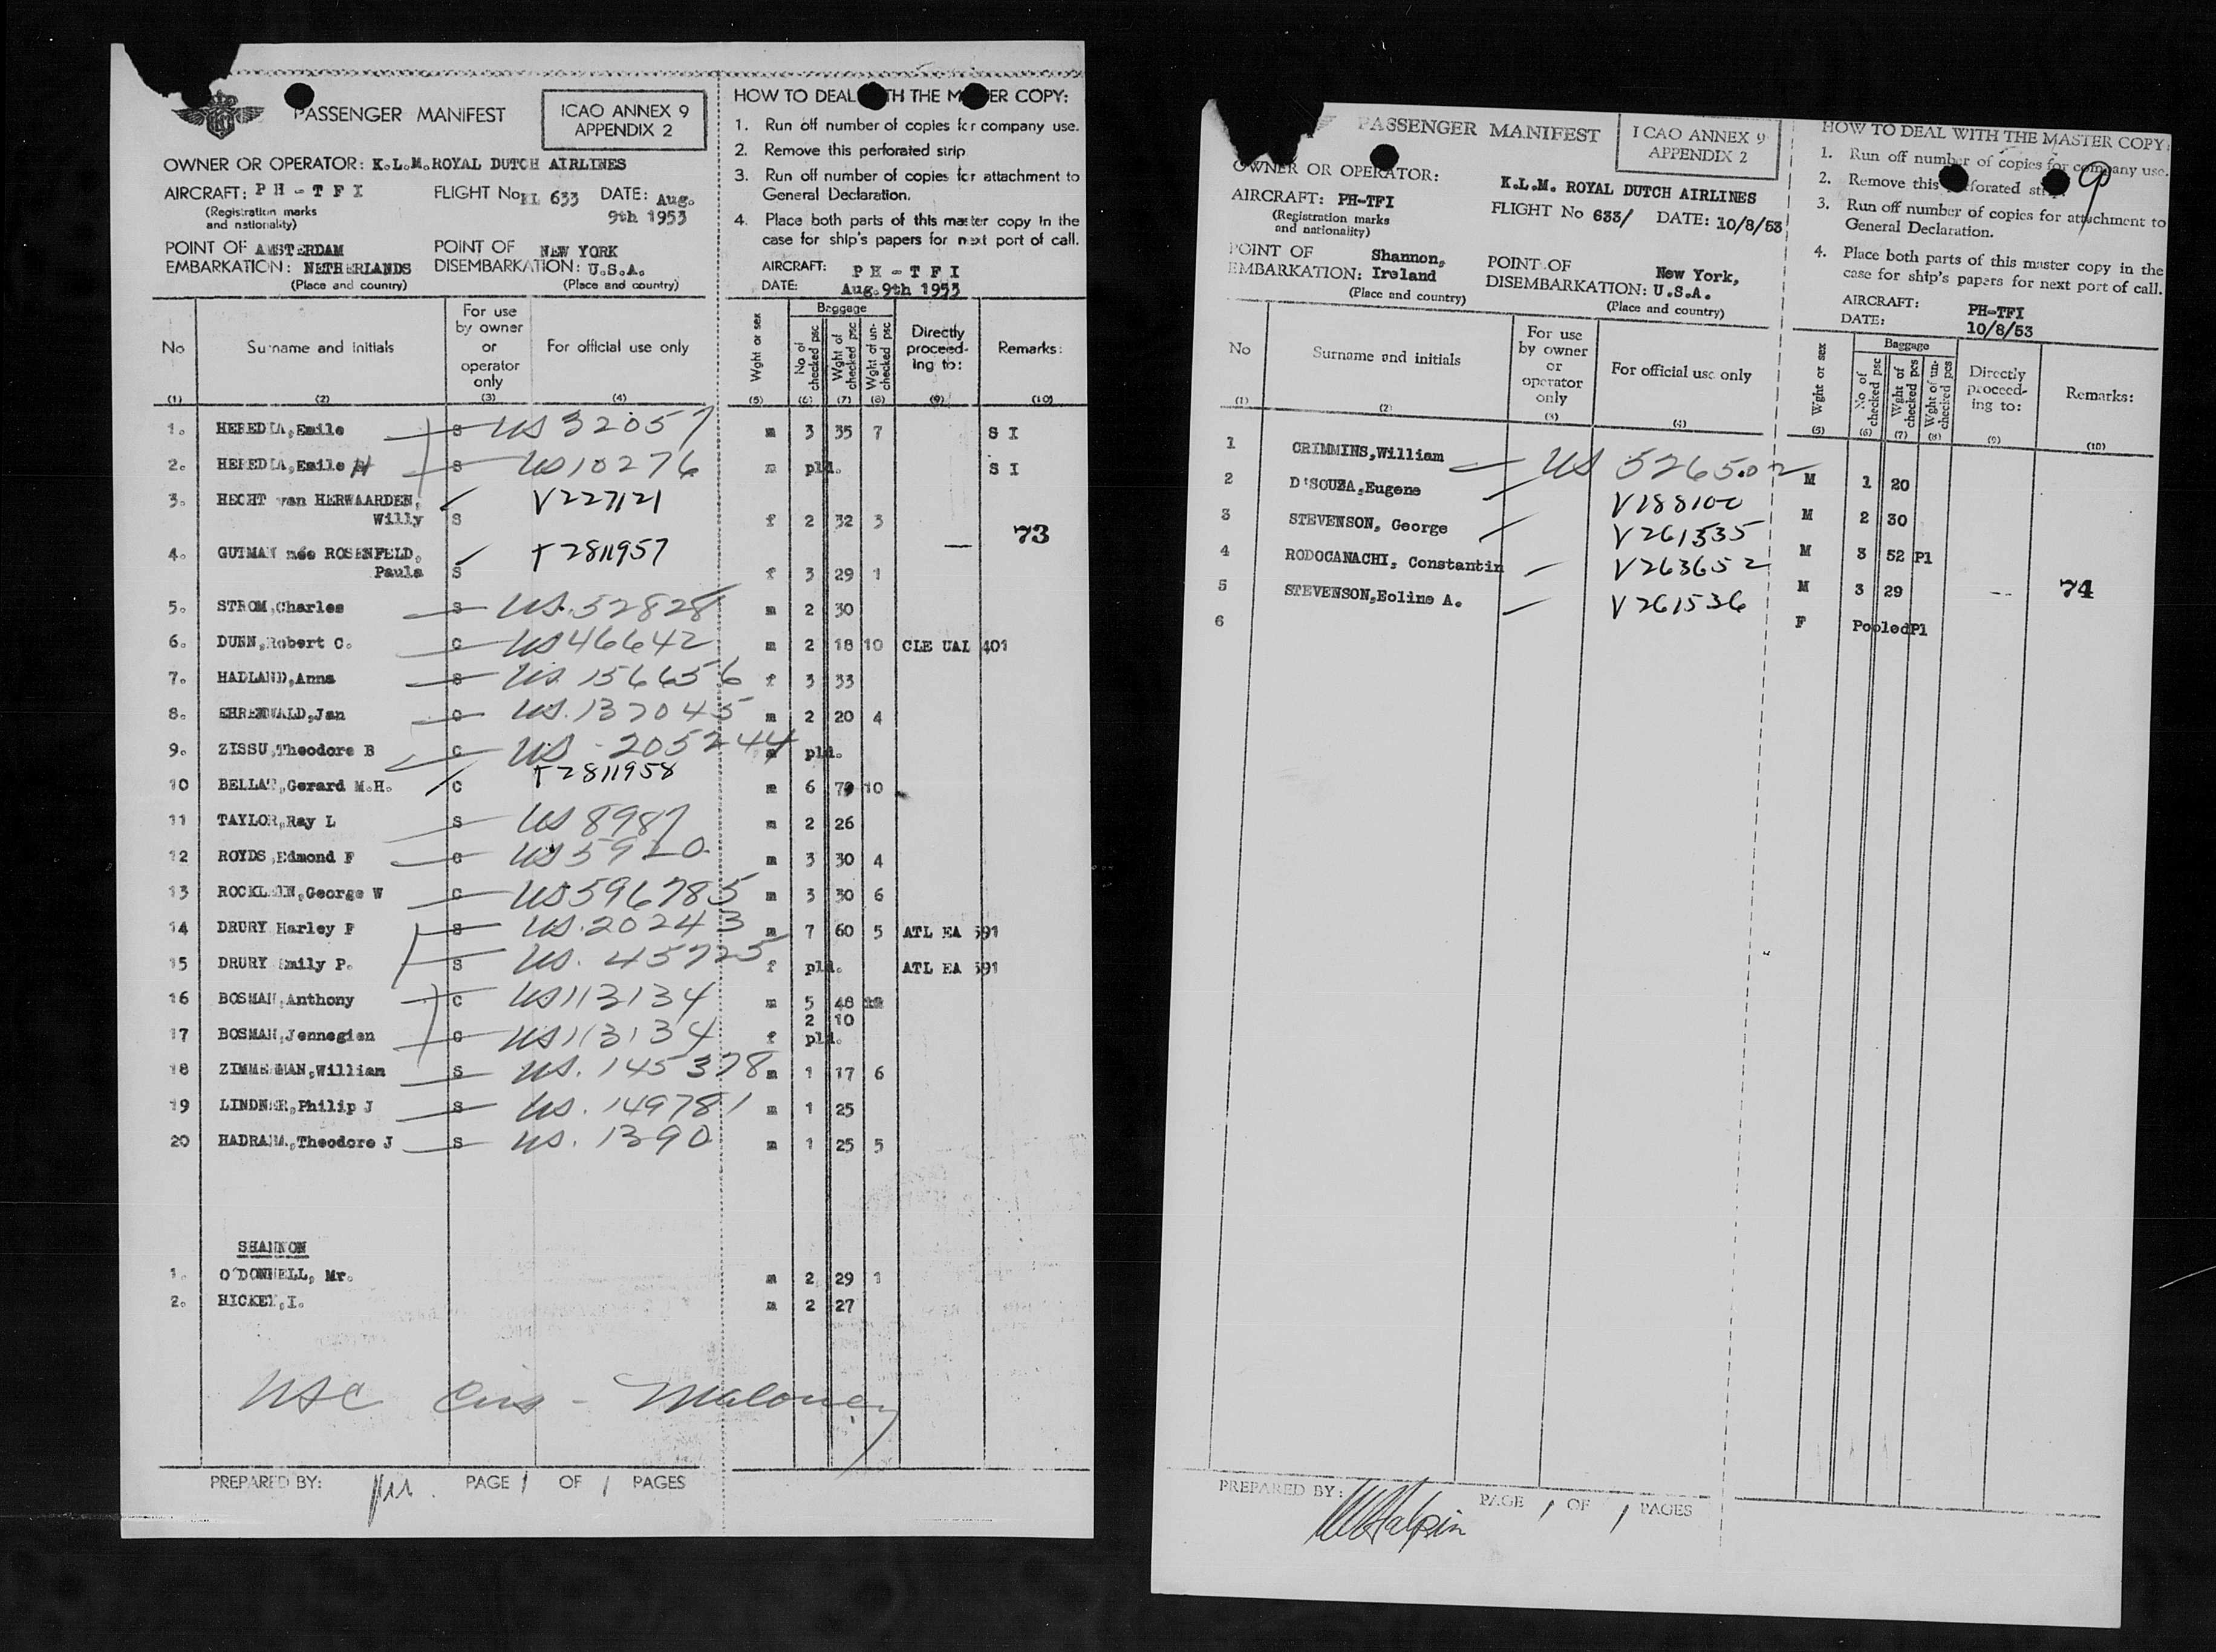 PASSENGER MANIFEST
ICAO ANNEX 9
APPENDIX 2
OWNER OR OPERATOR: K.L.M.ROYAL DUTCH AIRLINES
AIRCRAFT: PH - T F I FLIGHT No KL 633 DATE: Aug.
9th 1953
(Registration marks
and nationality)
POINT OF AMSTERDAM POINT OF NEW YORK
EMBARKATION: NETHERLANDS DISEMBARKATION: U.S.A.
(Place and country) (Place and country)
HOW TO DEAL WITH THE MASTER COPY:
1. Run off number of copies for company use.
2. Remove this perforated strip
3. Run off number of copies for attachment to
General Declaration.
4. Place both parts of this master copy in the
case for ship's papers for next port of call.
AIRCRAFT: PH - T F I
DATE: Aug.9th 1953
No Surname and initials For use by owner or operator only For official use only Wght or sex Baggage No of checked psc Wght of checked psc Wght of un-checked psc Directly proceed-ing to: Remarks:
(1) (2) (3) (4) (5) (6) (7) (8) (9) (10)
1. HEREDIA,Emile S US 32057 m 3 35 7 S I
2. HEREDIA,Emile H S US 10276 m pld. S I
3. HECHT van HERWAARDEN, V227121
Willy S f 2 32 3
73
4. GUTMAN née ROSENFELD, T2811957
Paula S f 3 29 1
5. STROM,Charles S US.52828 m 2 30
6. DUNN,Robert C. C US 46642 m 2 18 10 CLE UAL 401
7. HADLAND,Anna S US 156656 f 3 33
8. EHRENWALD,Jan C US.137045 m 2 20 4
9. ZISSU,Theodore B C US - 205244 m pld.
10 BELLAT,Gerard M.H. C T2811958 m 6 79 10
11 TAYLOR,Ray L S US 8987 m 2 26
12 ROYDS,Edmond F C US 5920 m 3 30 4
13 ROCKLEIN,George W C US 596785 m 3 30 6
14 DRURY Harley F S US.20243 m 7 60 5 ATL EA 591
15 DRURY Emily P. S US. 45725 f pld. ATL EA 591
16 BOSMAN,Anthony C US 113134 m 5 48
2 10
17 BOSMAN,Jennegien C US 113134 f pld.
18 ZIMMERMAN,William S US. 145378 m 1 17 6
19 LINDNER,Philip J S US. 149781 m 1 25
20 HADRABA,Theodore J S US. 1390 m 1 25 5
SHANNON
1. O'DONNELL, Mr. m 2 29 1
2. HICKEY,I. m 2 27
Maloney
PREPARED BY: PAGE 1 OF 1 PAGES
PASSENGER MANIFEST
ICAO ANNEX 9
APPENDIX 2
OWNER OR OPERATOR: K.L.M. ROYAL DUTCH AIRLINES
AIRCRAFT: PH-TFI FLIGHT No 633/ DATE: 10/8/53
(Registration marks
and nationality)
POINT OF Shannon, POINT OF New York,
EMBARKATION: Ireland DISEMBARKATION: U.S.A.
(Place and country) (Place and country)
HOW TO DEAL WITH THE MASTER COPY:
1. Run off number of copies for company use.
2. Remove this perforated strip.
3. Run off number of copies for attachment to
General Declaration.
4. Place both parts of this master copy in the
case for ship's papers for next port of call.
AIRCRAFT: PH-TFI
DATE: 10/8/53
No Surname and initials For use by owner or operator only For official use only Wght or sex Baggage No of checked psc Wght of checked pcs Wght of un-checked pcs Directly proceed-ing to: Remarks:
(1) (2) (3) (4) (5) (6) (7) (8) (9) (10)
1 CRIMMINS,William US 526502 M 1 20
2 D'SOUZA,Eugene V188100 M 2 30
3 STEVENSON, George V261535 M 3 52 Pl
4 RODOCANACHI, Constantin V263652 M 3 29 -- 74
5 STEVENSON,Eoline A. V261536 F PooledPl
6
PREPARED BY: PAGE 1 OF 1 PAGES